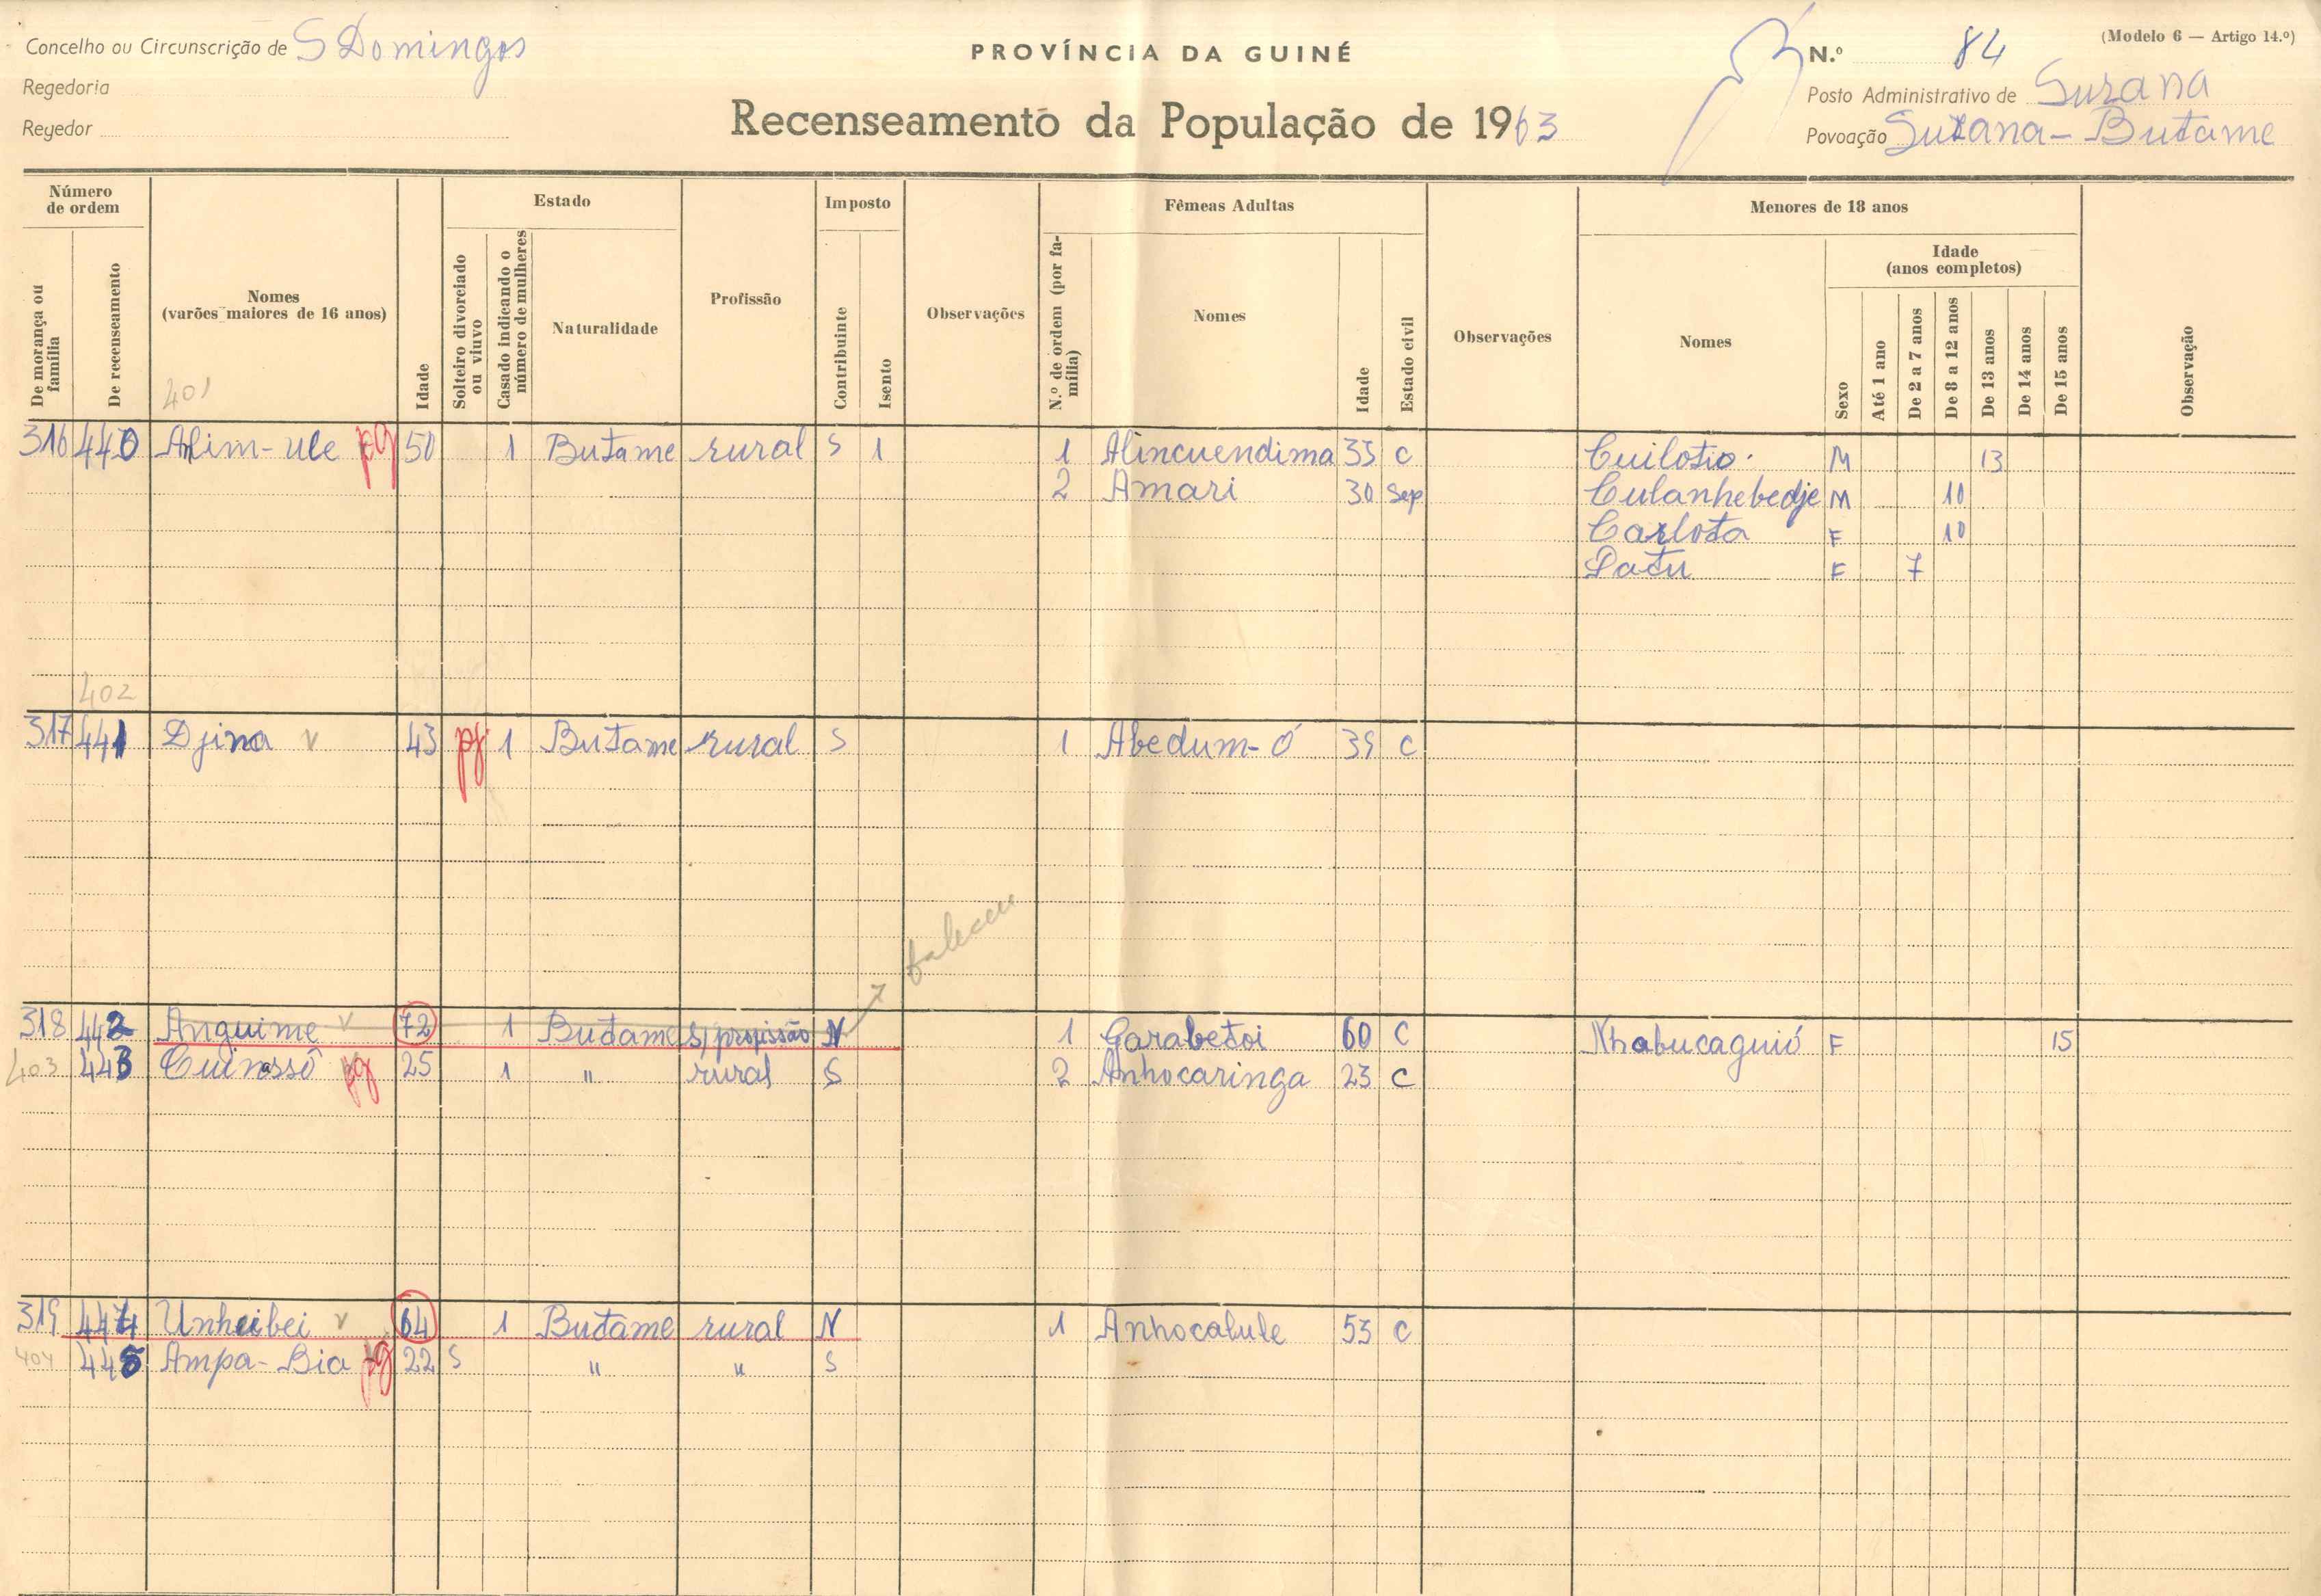 Concelho ou Circunscrição de S Domingos
Regedoria
Regedor
PROVÍNCIA DA GUINÉ
Recenseamento da População de 1963
(Modelo 6 — Artigo 14.º)
N.º 84
Posto Administrativo de Suzana
Povoação Suzana - Butame
Número de ordem
De morança ou família
De recenseamento
Nomes
(varões maiores de 16 anos)
401
Idade
Estado
Solteiro divorciado ou viuvo
Casado indicando o número de mulheres
Naturalidade
Profissão
Imposto
Contribuinte
Isento
Observações
Fêmeas Adultas
N.º de ordem (por família)
Nomes
Idade
Estado civil
Observações
Menores de 18 anos
Nomes
Sexo
Idade
(anos completos)
Até 1 ano
De 2 a 7 anos
De 8 a 12 anos
De 13 anos
De 14 anos
De 15 anos
Observação
316 440 Alim-ule pg 50 1 Butame rural S 1 1 Alincuendima 35 C Cuilotio M 13
2 Amari 30 Sep Culanhebedje M 10
Carlota F 10
Patu F 7
402
317 441 Djina v 43 pg 1 Butame rural S 1 Abedum-ó 39 C
faleceu
318 442 Anguime v 72 1 Butame s/profissão N 1 Garabetoi 60 C Nhabucaguió F 15
403 443 Cuinassô pg 25 1 " rural S 2 Anhocaringa 23 C
319 444 Unheibei v 64 1 Butame rural N 1 Anhocalule 53 C
404 445 Ampa-Bia pg 22 S " " S